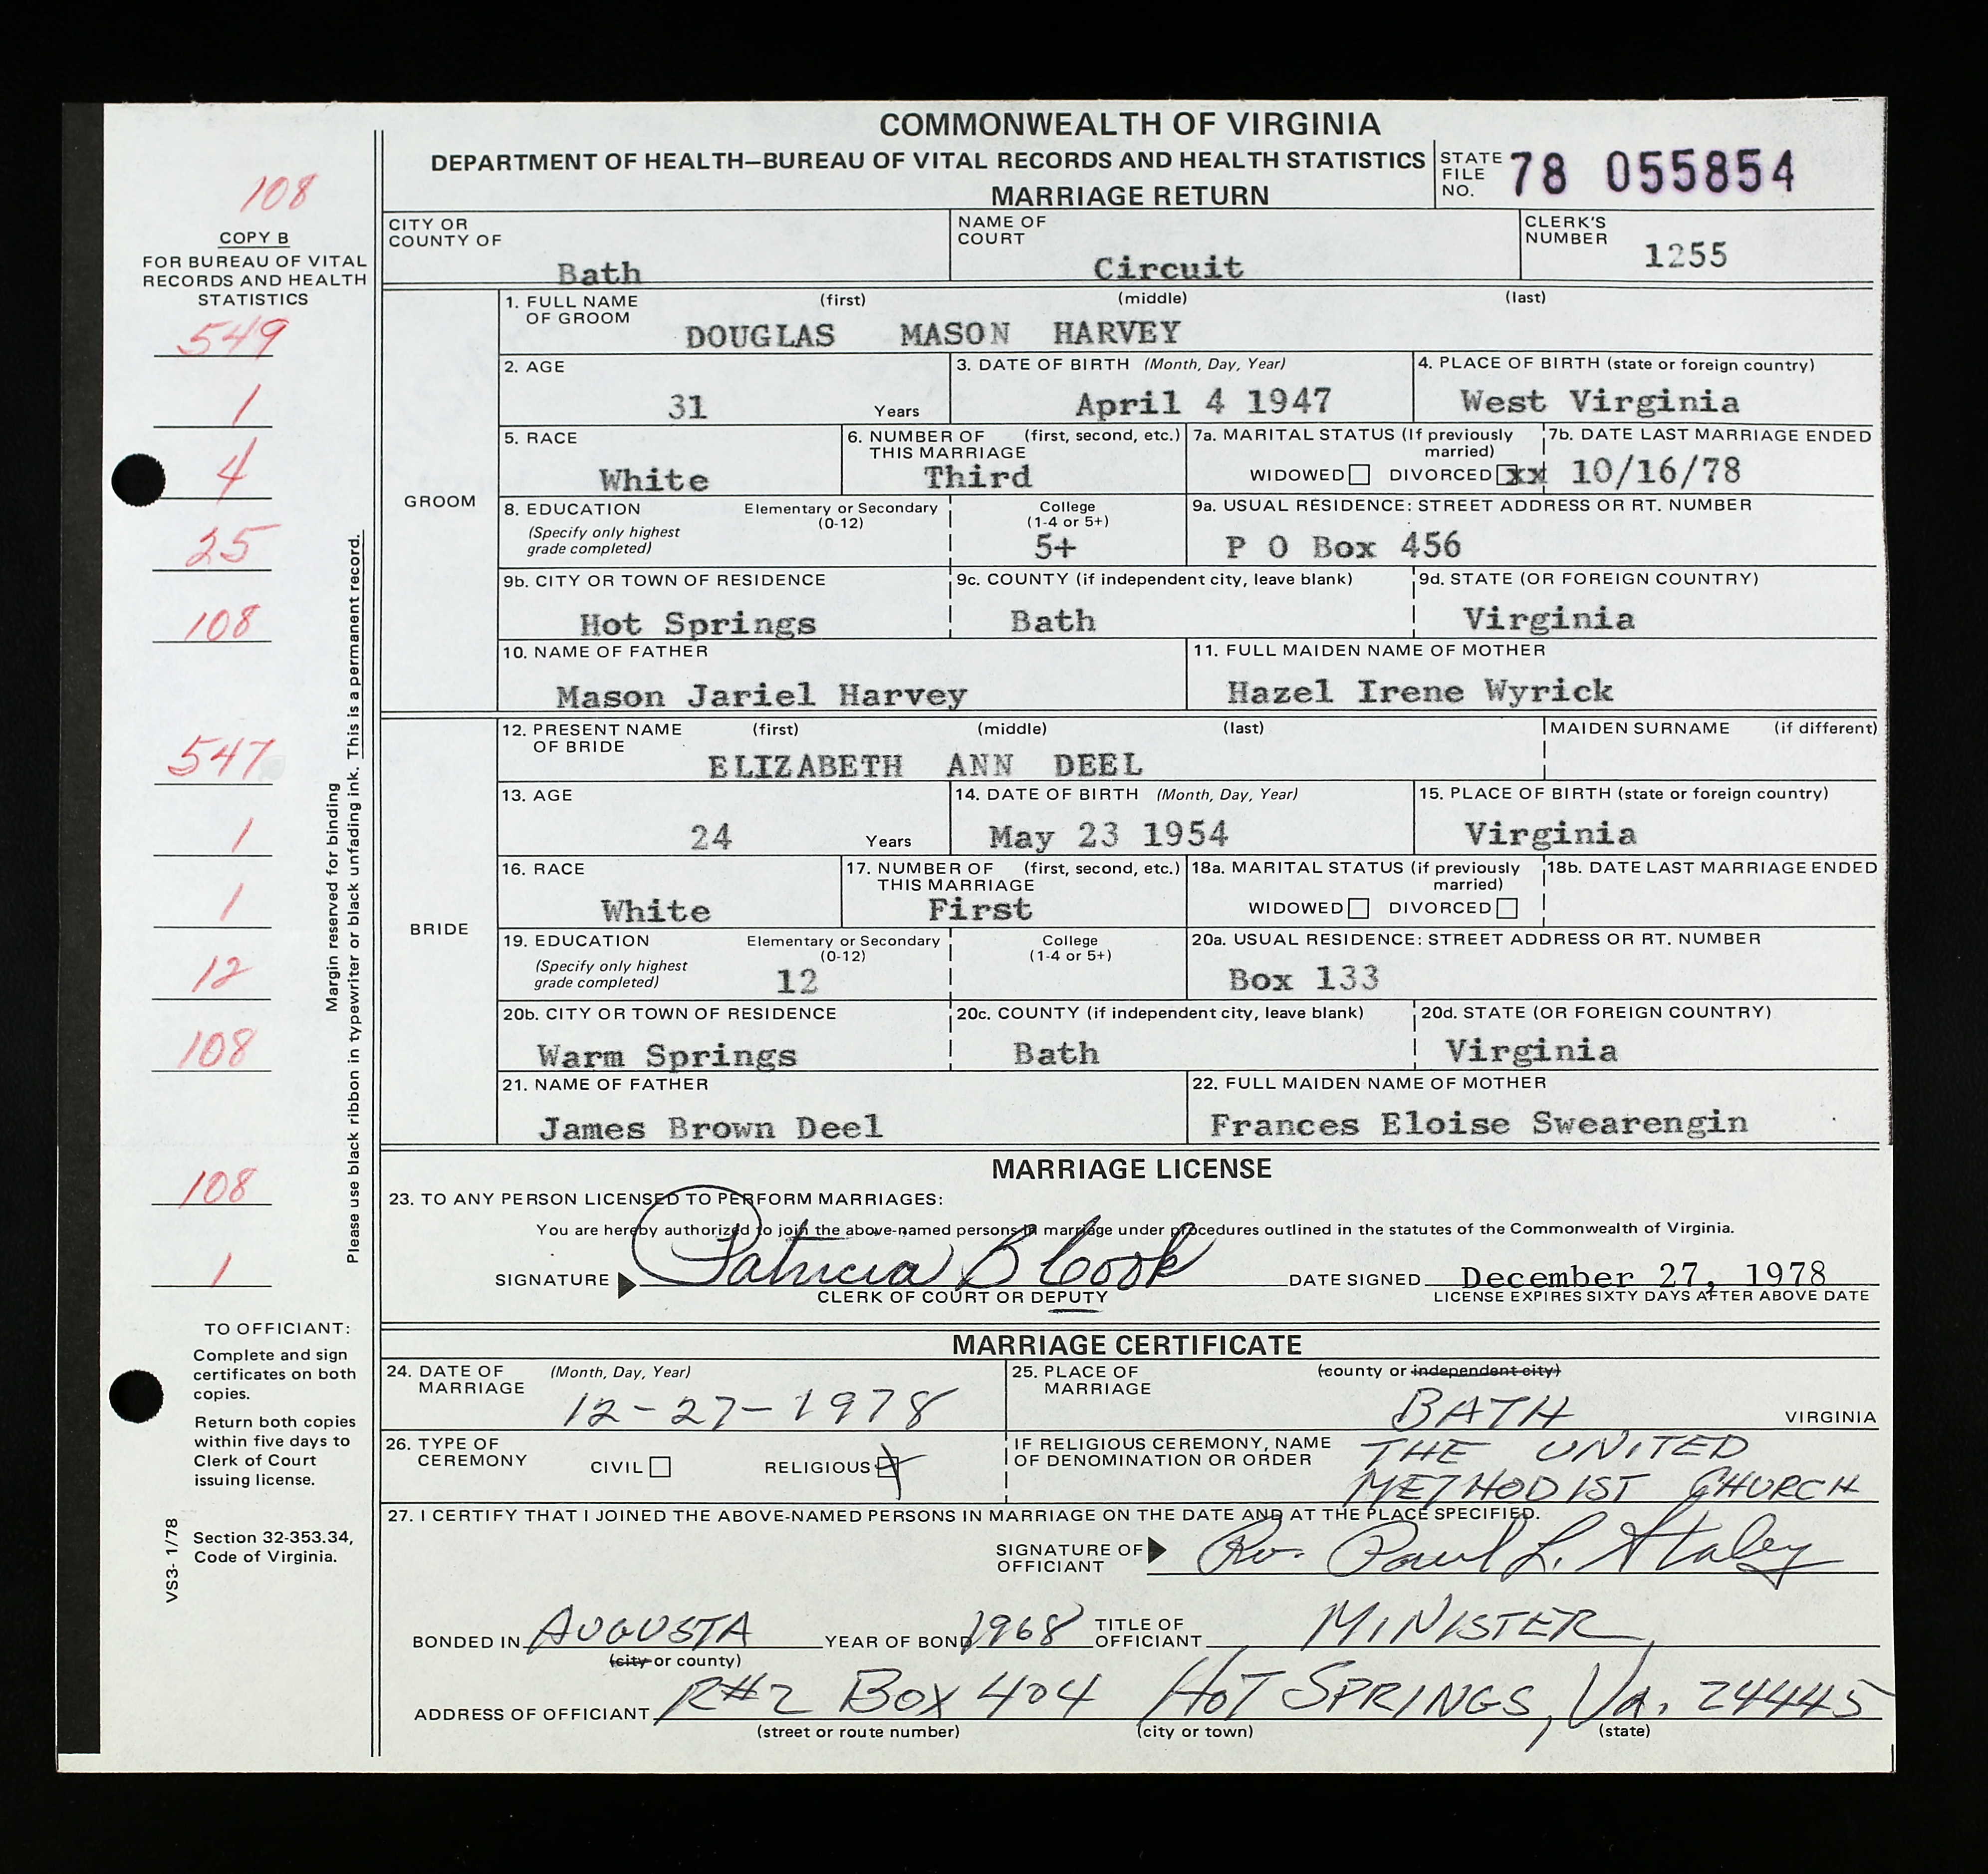 COMMONWEALTH OF VIRGINIA
DEPARTMENT OF HEALTH—BUREAU OF VITAL RECORDS AND HEALTH STATISTICS
MARRIAGE RETURN
STATE FILE NO. 78 055854
108
COPY B
FOR BUREAU OF VITAL
RECORDS AND HEALTH
STATISTICS
549
1
4
25
108
547
1
1
12
108
108
1
Margin reserved for binding
Please use black ribbon in typewriter or black unfading ink. This is a permanent record.
TO OFFICIANT:
Complete and sign
certificates on both
copies.
Return both copies
within five days to
Clerk of Court
issuing license.
Section 32-353.34,
Code of Virginia.
VS3- 1/78
CITY OR COUNTY OF Bath
NAME OF COURT Circuit
CLERK'S NUMBER 1255
GROOM
1. FULL NAME OF GROOM (first) (middle) (last)
DOUGLAS MASON HARVEY
2. AGE 31 Years
3. DATE OF BIRTH (Month, Day, Year) April 4 1947
4. PLACE OF BIRTH (state or foreign country) West Virginia
5. RACE White
6. NUMBER OF THIS MARRIAGE (first, second, etc.) Third
7a. MARITAL STATUS (If previously married) WIDOWED DIVORCED xx
7b. DATE LAST MARRIAGE ENDED 10/16/78
8. EDUCATION (Specify only highest grade completed) Elementary or Secondary (0-12) College (1-4 or 5+) 5+
9a. USUAL RESIDENCE: STREET ADDRESS OR RT. NUMBER P O Box 456
9b. CITY OR TOWN OF RESIDENCE Hot Springs
9c. COUNTY (if independent city, leave blank) Bath
9d. STATE (OR FOREIGN COUNTRY) Virginia
10. NAME OF FATHER Mason Jariel Harvey
11. FULL MAIDEN NAME OF MOTHER Hazel Irene Wyrick
BRIDE
12. PRESENT NAME OF BRIDE (first) (middle) (last) MAIDEN SURNAME (if different)
ELIZABETH ANN DEEL
13. AGE 24 Years
14. DATE OF BIRTH (Month, Day, Year) May 23 1954
15. PLACE OF BIRTH (state or foreign country) Virginia
16. RACE White
17. NUMBER OF THIS MARRIAGE (first, second, etc.) First
18a. MARITAL STATUS (if previously married) WIDOWED DIVORCED
18b. DATE LAST MARRIAGE ENDED
19. EDUCATION (Specify only highest grade completed) Elementary or Secondary (0-12) 12 College (1-4 or 5+)
20a. USUAL RESIDENCE: STREET ADDRESS OR RT. NUMBER Box 133
20b. CITY OR TOWN OF RESIDENCE Warm Springs
20c. COUNTY (if independent city, leave blank) Bath
20d. STATE (OR FOREIGN COUNTRY) Virginia
21. NAME OF FATHER James Brown Deel
22. FULL MAIDEN NAME OF MOTHER Frances Eloise Swearengin
MARRIAGE LICENSE
23. TO ANY PERSON LICENSED TO PERFORM MARRIAGES:
You are hereby authorized to join the above-named persons in marriage under procedures outlined in the statutes of the Commonwealth of Virginia.
SIGNATURE Patricia B Cook DATE SIGNED December 27, 1978
CLERK OF COURT OR DEPUTY LICENSE EXPIRES SIXTY DAYS AFTER ABOVE DATE
MARRIAGE CERTIFICATE
24. DATE OF MARRIAGE (Month, Day, Year) 12-27-1978
25. PLACE OF MARRIAGE (county or independent city) BATH VIRGINIA
26. TYPE OF CEREMONY CIVIL RELIGIOUS X
IF RELIGIOUS CEREMONY, NAME OF DENOMINATION OR ORDER THE UNITED
METHODIST CHURCH
27. I CERTIFY THAT I JOINED THE ABOVE-NAMED PERSONS IN MARRIAGE ON THE DATE AND AT THE PLACE SPECIFIED.
SIGNATURE OF OFFICIANT Rev. Paul L. Staley
BONDED IN AUGUSTA YEAR OF BOND 1968 TITLE OF OFFICIANT MINISTER
(city or county)
ADDRESS OF OFFICIANT R#2 BOX 404 HOT SPRINGS, Va. 24445
(street or route number) (city or town) (state)